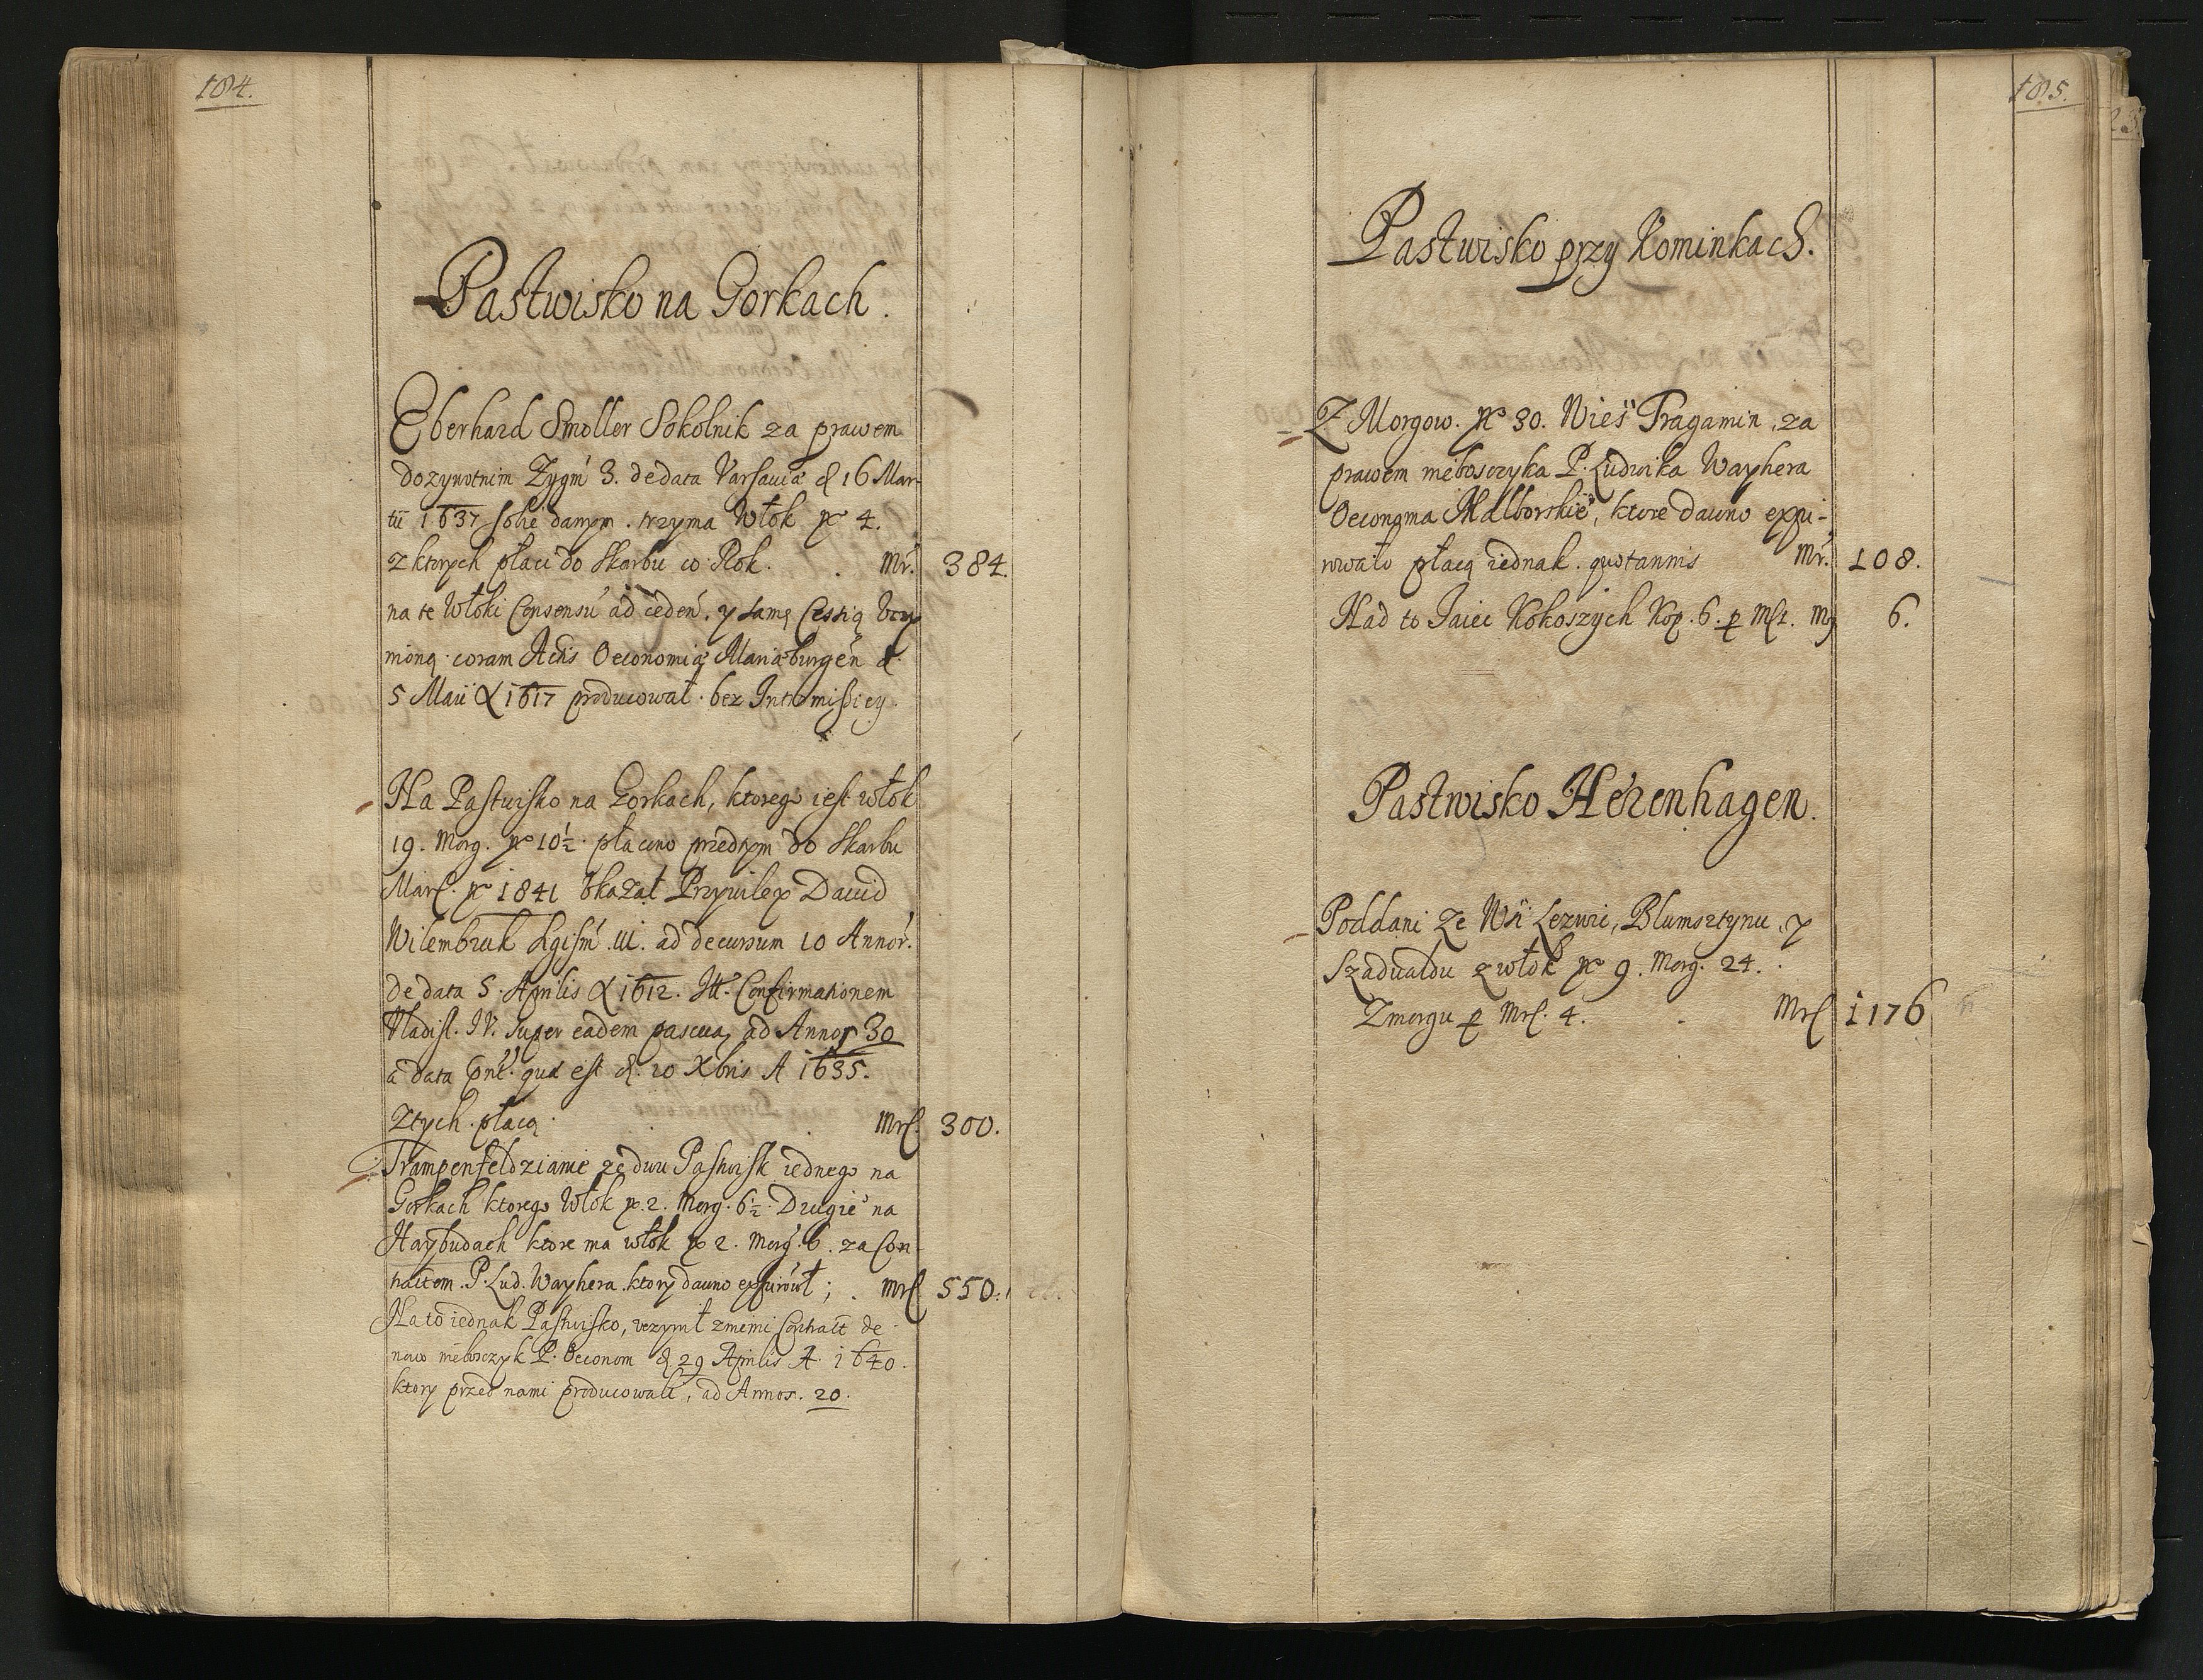 184.
Pastwisko na Gorkach.
Eberhard Smoller Sokolnik za prawem
dozywotnim Zygm̃ 3. de data Varsauiæ d 16 Mar-
tii 1637 sobie danym. trzyma Włok No 4.
z ktorych płaci do Skarbu co Rok. Mr. 384.
na te Włoki Consensũ ad ceden. y samę Cessią Vczy
nioną coram Actis Oeconomiæ Mariæburgen d.
5 Maii A 1617 producował. bez Intromissiey.
Na Pastwisko na Gorkach, ktorego iest włok
19. Morg. No 10½. płacono przedtym do Skarbu
Marc. No 1841 Vkazał Przywiley Dawid
Wilembruk Sgism̃ III. ad decursum 10 Annor.
de data 5. Aprilis A 1612. Itt. Confirmationem
Vladisl. IV. super eadem pascua, ad Annos 30
a data qua est d. 20 Xbris A 1635.
Z tych. płacą. Mrc. 300.
Trampenfeldzianie ze dwu Pastwisk iednego na
Gorkach ktorego Włok No 2. Morg. 6½. Drugie na
Haybudach ktore ma włok No 2. Morg. 6. za Con-
tractem. P. Lud. Wayhera. ktory dawno expirował; Mrc 550.
Na to iednak Pastwisko, vczynił z niemi Contract de
nowo nieboszczyk P. Oeconom d 29 Aprilis A. 1640.
ktory przed nami producowali, ad Annos. 20.
185.
Pastwisko przy Kominkach.
Z Morgow. No 30. Wieś Tragamin, za
prawem nieboszczyka P. Ludwika Wayhera
Oeconoma Malborskie, ktore dawno expi-
rowało płacą iednak. quotannis Mr. 108.
Nad to Iaiec Kokoszych Kop. 6. p 6.
Pastwisko Herenhagen.
Poddani ze Wsi Lezwic, Blumsztynu, y
Szadwałdu z włok No 9. Morg. 24.
Z morgu p Mrc. 4. Mrc 1176